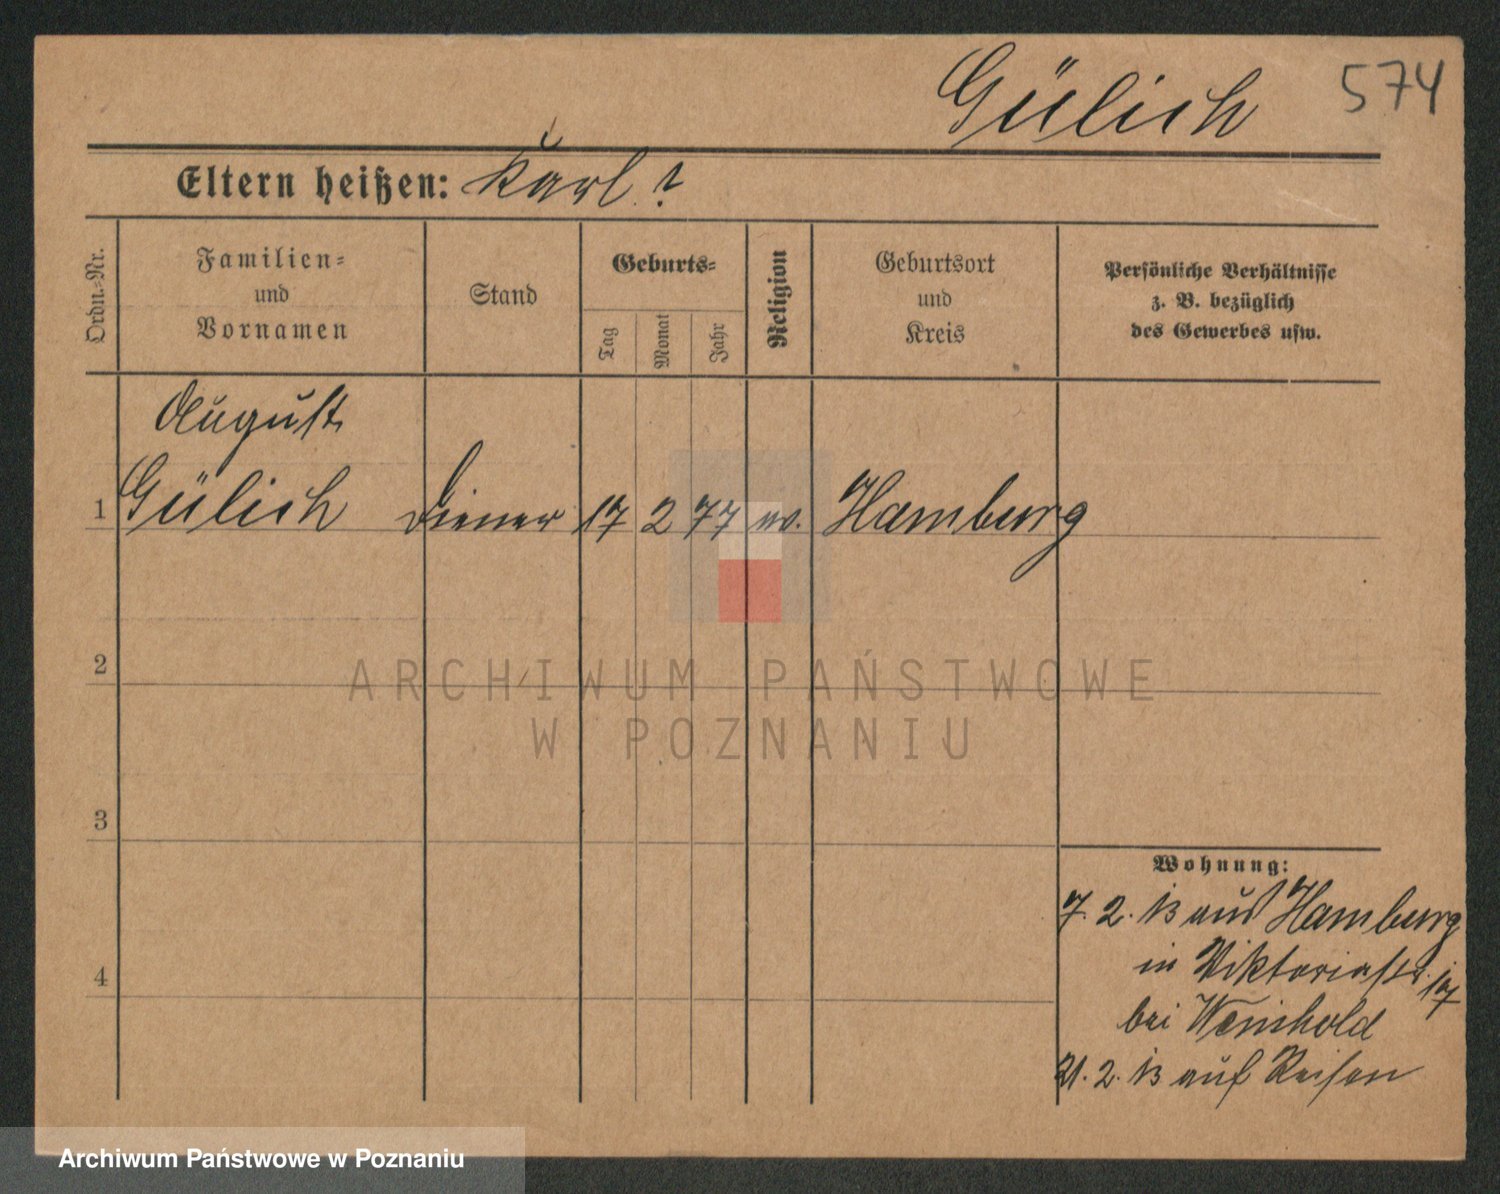 Gülich 574
Eltern heißen: Karl ?
Ordn.-Nr.
Familien-
und
Vornamen
Stand
Geburts-
Tag
Monat
Jahr
Religion
Geburtsort
und
Kreis
Persönliche Verhältnisse
z. B. bezüglich
des Gewerbes usw.
August
1 Gülich Diener 17 2 77 ev. Hamburg
2
ARCHIWUM PAŃSTWOWE
W POZNANIU
3
Wohnung:
7. 2. 13 aus Hamburg
in Viktoriastr. 17
4
bei Weinhold
21. 2. 13 auf Reisen
Archiwum Państwowe w Poznaniu